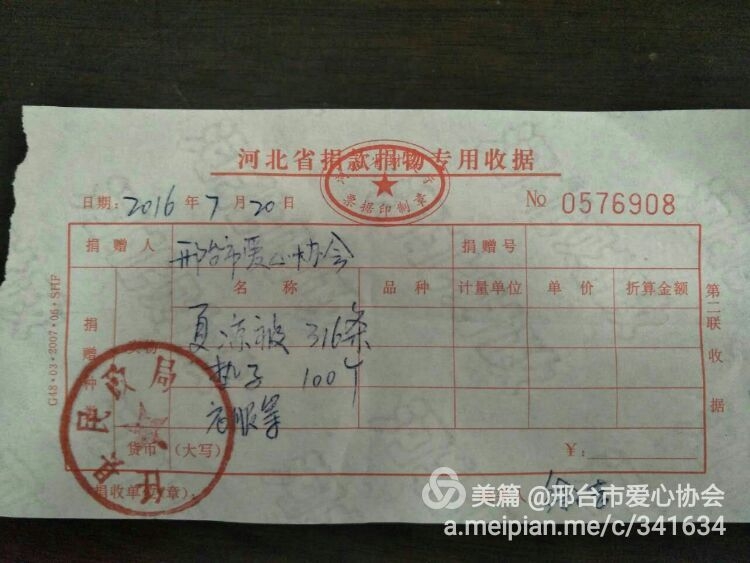 河北省捐款捐物专用收据
票据印制章
日期: 2016 年 7 月 20 日 № 0576908
捐赠人 邢台市爱心协会 捐赠号
名称 品种 计量单位 单价 折算金额
捐赠种
夏凉被 316条
垫子 100个
衣服等
货币 (大写) ¥:
捐收单位(章):
人
民政局
第二联收据
G48·03·2007·06·SHF
美篇 @邢台市爱心协会
a.meipian.me/c/341634